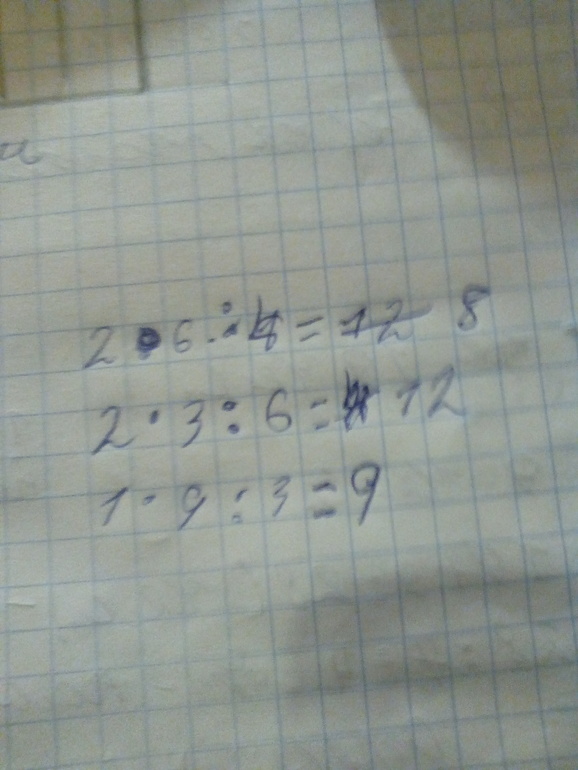 и
2 • 6 ÷ 4 = 12 8
2 · 3 : 6 = 12
1 · 9 : 3 = 9